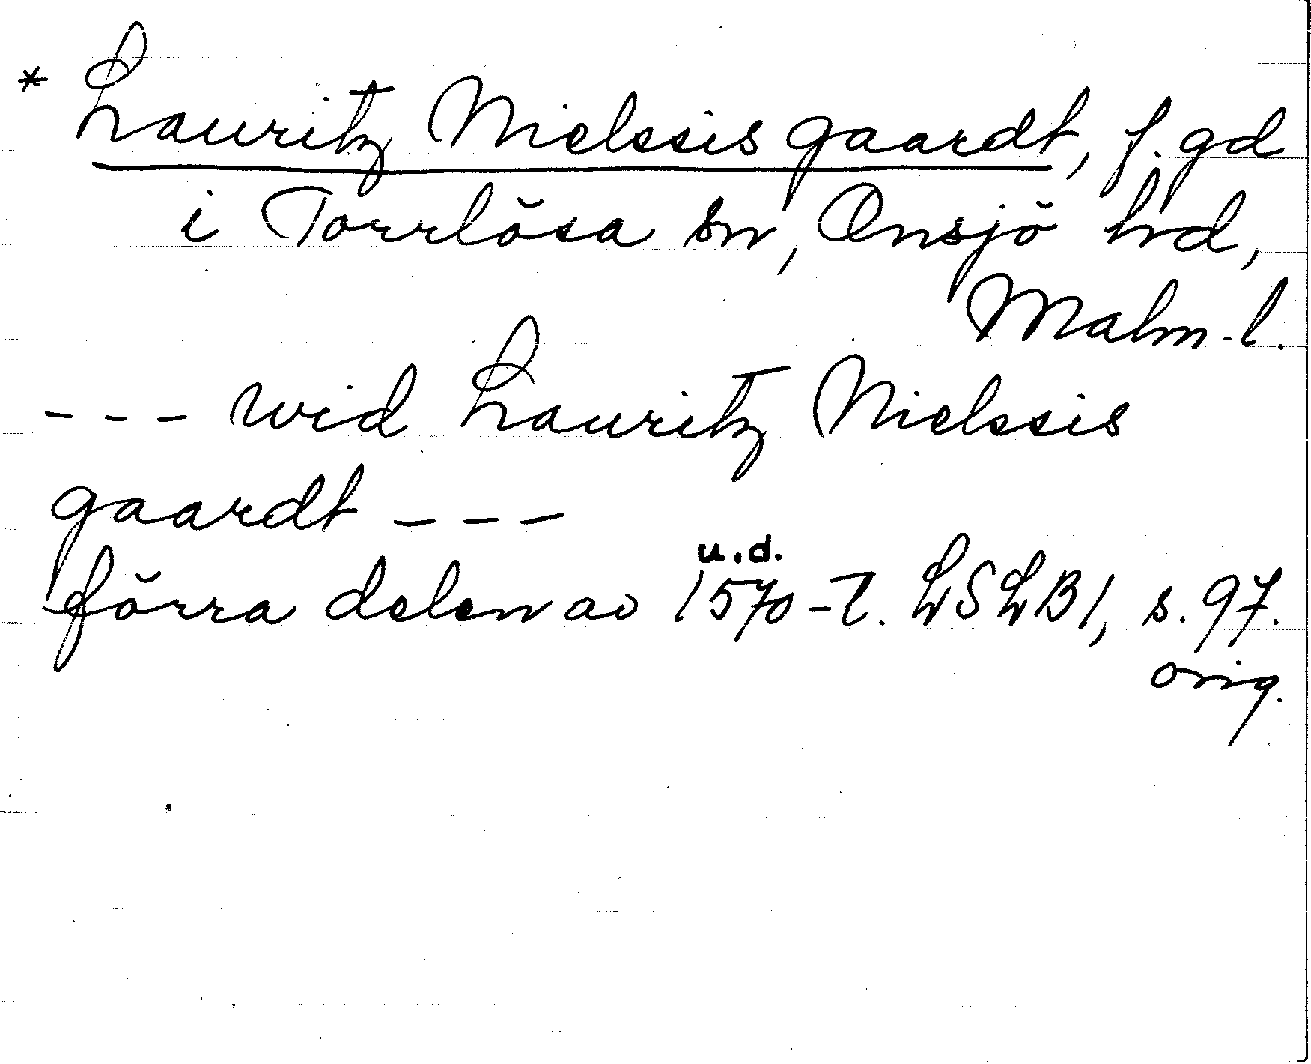 * Lauritz Nielssis gaardt, f. gd
i Torrlösa sn, Onsjö hd,
Malm. l.
--- wid Lauritz Nielssis
gaardt ---
u.d.
förra delen av 1570-t. LSLB 1, s. 97.
orig.